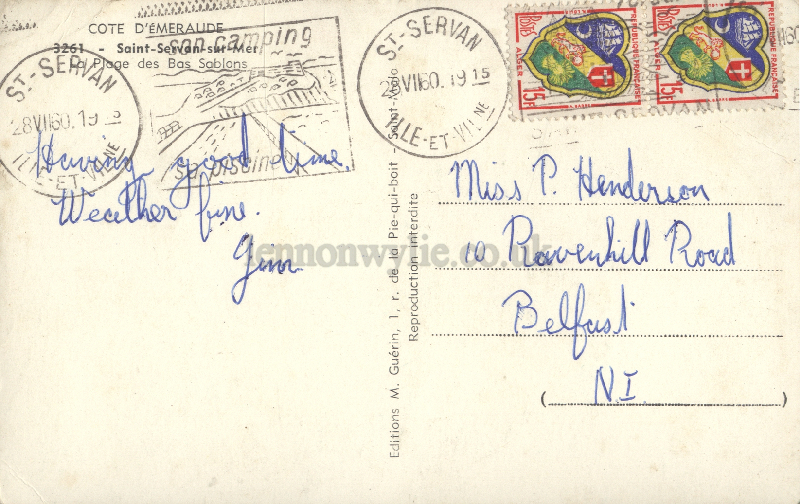 COTE D'ÉMERAUDE
3261 - Saint-Servan-sur-Mer
La Plage des Bas Sablons
son camping
sa piscine
ST-SERVAN
28 VII 60. 19 15
ILLE-ET-VILNE
ST-SERVAN
28 VII 60. 19 15
ILLE-ET-VILNE
POSTES
ALGER 15F
REPUBLIQUE FRANÇAISE
POSTES
ALGER 15F
REPUBLIQUE FRANÇAISE
Having good time.
Weather fine.
Jim
lennonwylie.co.uk
Editions M. Guérin, 1, r. de la Pie-qui-boit - Saint-Malo
Reproduction interdite
Miss P. Henderson
10 Ravenhill Road
Belfast
(NI